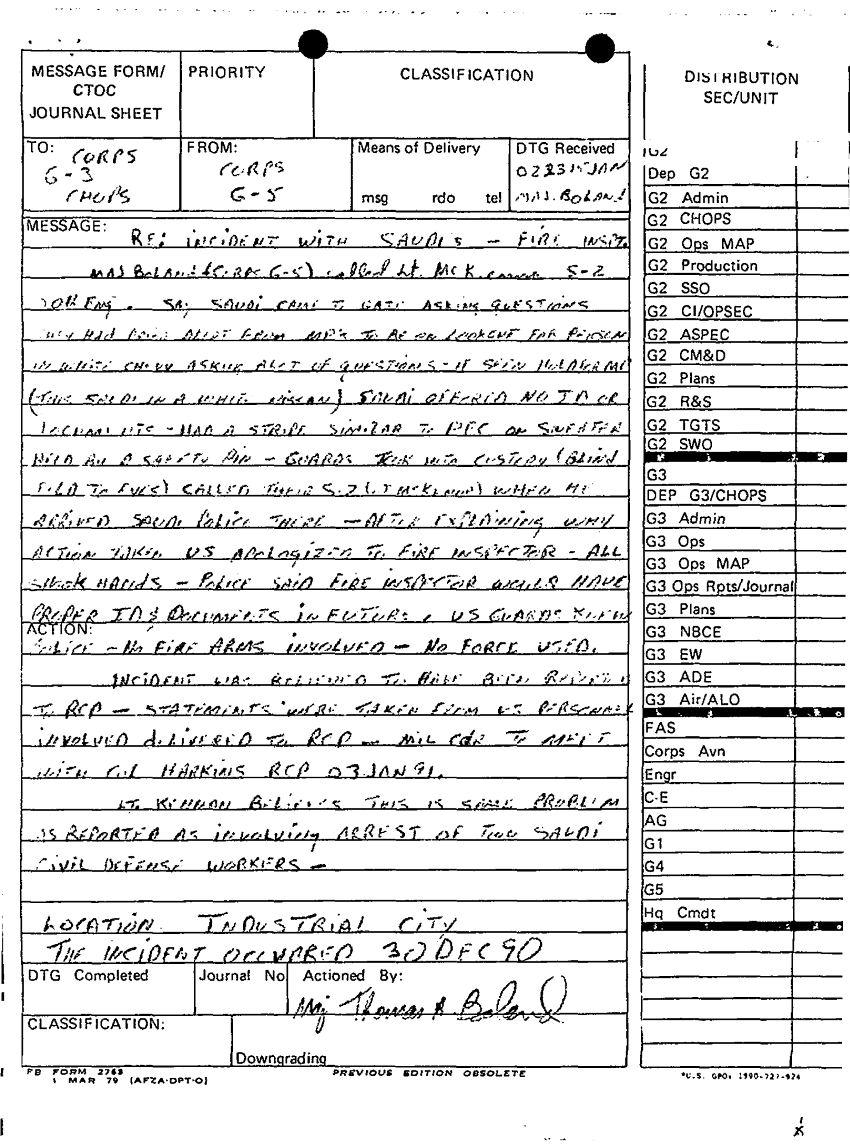 MESSAGE FORM/
CTOC
JOURNAL SHEET
PRIORITY
CLASSIFICATION
TO: CORPS
G-3
CHOPS
FROM:
CORPS
G-5
Means of Delivery
msg rdo tel
DTG Received
022315JAN
MAJ. BOLAND
MESSAGE:
RE: INCIDENT WITH SAUDI'S - FIRE INSP.
MAJ BOLAND (CORPS G-5) called Lt. S-2
20th ENG. SAUDI CAME TO GATE ASKING QUESTIONS
THEY HAD ALERT FROM MP'S TO BE ON LOOKOUT FOR PERSON
IN WHITE CHEVY ASKING ALOT OF QUESTIONS - IF SEEN
(THIS SAUDI IN A WHITE NISSAN) SAUDI OFFERED NO ID OR
DOCUMENTS - HAD A STRIPE SIMILAR TO PFC ON SWEATER
HELD SAFETY PIN - GUARDS TOOK INTO CUSTODY (BLIND
FOLD TO EYES) CALLED THEIR S-2 WHEN HE
ARRIVED SAUDI POLICE THERE - AFTER EXPLAINING WHY
ACTION TAKEN US APOLOGIZED TO FIRE INSPECTOR - ALL
SHOOK HANDS - POLICE SAID FIRE INSPECTOR WOULD HAVE
PROPER ID & DOCUMENTS IN FUTURE, US GUARDS KNEW
ACTION:
POLICE - NO FIRE ARMS INVOLVED - NO FORCE USED.
INCIDENT WAS BELIEVED TO HAVE BEEN
TO RCP - STATEMENTS WERE TAKEN FROM US PERSONNEL
INVOLVED delivered TO RCP - MIL CDR TO MEET
WITH COL HARKINS RCP 03 JAN 91.
LT BELIEVES THIS IS SAME PROBLEM
AS REPORTED AS INVOLVING ARREST OF TWO SAUDI
CIVIL DEFENSE WORKERS -
LOCATION INDUSTRIAL CITY
THE INCIDENT OCCURRED 30 DEC 90
DTG Completed
Journal No
Actioned By:
Maj Thomas R Boland
CLASSIFICATION:
Downgrading
FB FORM 2763
1 MAR 79 (AFZA-DPT-O)
PREVIOUS EDITION OBSOLETE
DISTRIBUTION
SEC/UNIT
G2
Dep G2
G2 Admin
G2 CHOPS
G2 Ops MAP
G2 Production
G2 SSO
G2 CI/OPSEC
G2 ASPEC
G2 CM&D
G2 Plans
G2 R&S
G2 TGTS
G2 SWO
G3
DEP G3/CHOPS
G3 Admin
G3 Ops
G3 Ops MAP
G3 Ops Rpts/Journal
G3 Plans
G3 NBCE
G3 EW
G3 ADE
G3 Air/ALO
FAS
Corps Avn
Engr
C-E
AG
G1
G4
G5
Hq Cmdt
*U.S. GPO: 1990-727-924